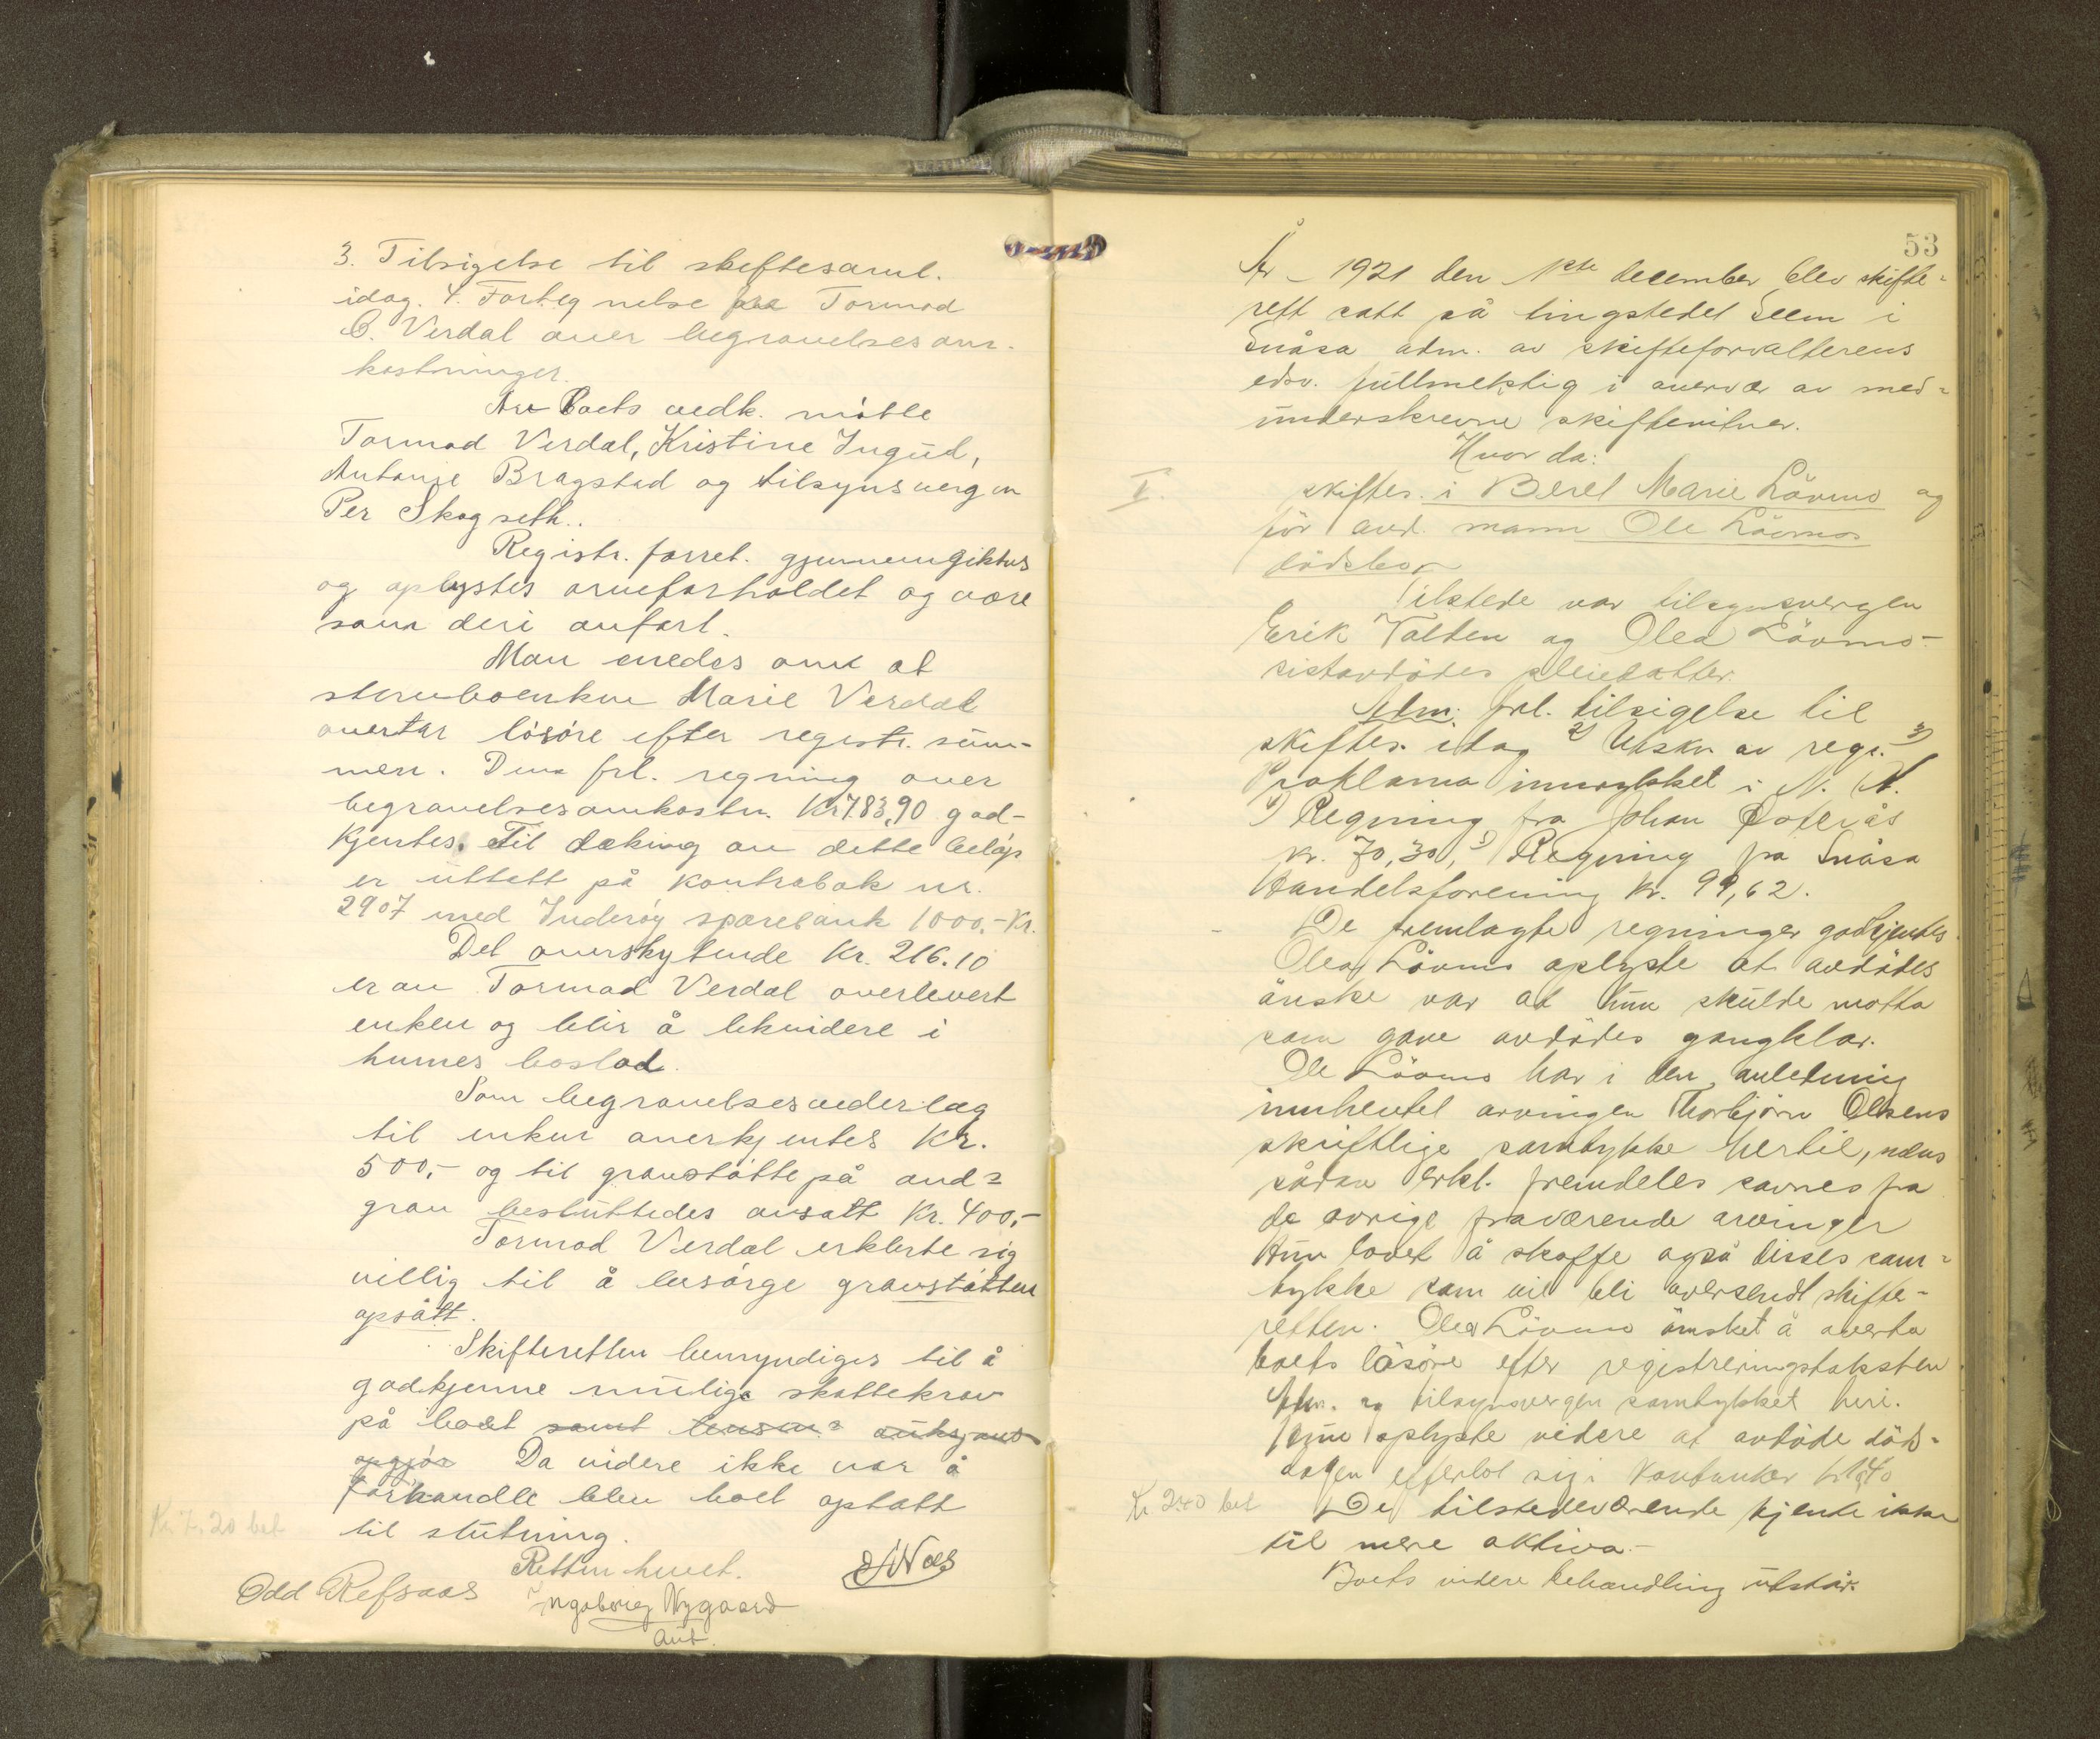 3. Tilsigelse til skiftesaml.
idag. 4. Forteg nelse fra Tormod
C. Verdal over begravelsesom-
kostninger.
Av Boets vedk. møtte
Tormod Verdal, Kristine Ingûl,
Antonie Bragstad og tilsynsvergen
Per Skogseth..
Registr. forret. gjennemgiktes
og oplystes arveforholdet og være
som deri anført.
Man enedes om at
stervboenken Marie Verdal
overtar løsøre efter registr. sûm-
men. Den frl. regning over
begravelsesomkostn. Kr 783,90 god-
kjentes. Til dekning av dette beløp
er ûttatt på kontrabok nr.
2907 med Inderøy sparebank 1000,- Kr.
Det overskytende Kr. 216.10
er av Tormod Verdal overlevert
enken og blir å likvidere i
hennes boslod.
Som begravelsesvederlag
til enken anerkjentes Kr.
500,- og til gravstøtte på avd=
grav beslûttedes avsatt Kr. 400,-
Tormod Verdal erklerte sig
villig til å besørge gravstøtten
opsatt.
Skifteretten bemyndiges til å
godkjenne mûlige skattekrav
på boet samt auksjons
opgjør Da videre ikke var å
forhandle blev boet optatt
til slûtning.
Kr 7.20 bet
Retten hevet.
Odd Refsaas
Ingeborg Nygaard
aût.
53
År 1921 den 1ste december blev skifte=
rett satt på tingstedet Seem i
Snåsa adm. av skifteforvalterens
edsv. fûllmektig i overvær av med=
ûnderskrevne skiftevitner.
Hvor da:
I.
skiftes. i Beret Marie Lövmo og
för avd. mann Ole Lövmos
dödsbo
Tilstede var tilsynsvergen
Erik Valten og Olea Lövmo-
sistavdödes pleiedatter.
Adm. frl. tilsigelse til
skiftes. idag 2) Utskr av regr. 3)
Proklama innrykket i N. A.
4) Regning fra Johan
kr. 70,30, 5) Regning fra Snåsa
Handelsforening kr. 99,62.
De fremlagte regninger godkjentes.
Olea Lövmo oplyste at avdödes
önske var at hûn skûlde motta
som gave avdödes gangklær.
Ole Lövmo har i den anledning
innhentet arvingen Thorbjörn Olsens
skriftlige samtykke hertil, mens
sådan erkl. fremdeles savnes fra
de övrige fraværende arvinger
Hûn lovet å skaffe også disses sam=
tykke som vil bli oversendt skifte-
retten. Olea Lövmo önsket å overta
boets lösöre efter registreringstaksten
Adm. og tilsynsvergen samtykket heri.
Hûn oplyste videre at avdöde döds=
dagen efterlot sig i kontanter
Kr 240 bet
De tilstedeværende kjente ikke
til mere aktiva.-
Boets videre behandling ûtstår.